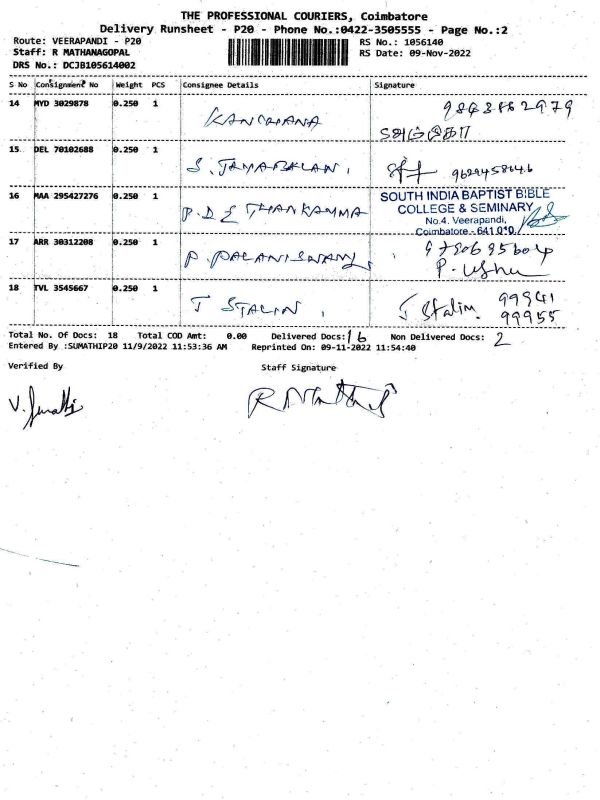 THE PROFESSIONAL COURIERS, Coimbatore
Delivery Runsheet - P20 - Phone No.:0422-3505555 - Page No.:2
Route: VEERAPANDI - P20 RS No.: 1056140
Staff: R MATHANAGOPAL RS Date: 09-Nov-2022
DRS No.: DCJB105614002
S No Consignment No Weight PCS Consignee Details Signature
14 MYD 3029878 0.250 1 KANCHANA
15 DEL 70102688 0.250 1 S. JAYABALAN.
16 MAA 295427276 0.250 1 P.D E THANKAMMA SOUTH INDIA BAPTIST BIBLE
COLLEGE & SEMINARY
No.4, Veerapandi,
Coimbatore - 641 019.
17 ARR 30312208 0.250 1 P. PALANISWAMY.
P. Usha
18 TVL 3545667 0.250 1 J STALIN. J Stalin. 99941
99955
Total No. Of Docs: 18 Total COD Amt: 0.00 Delivered Docs: 16 Non Delivered Docs: 2
Entered By :SUMATHIP20 11/9/2022 11:53:36 AM Reprinted On: 09-11-2022 11:54:40
Verified By Staff Signature